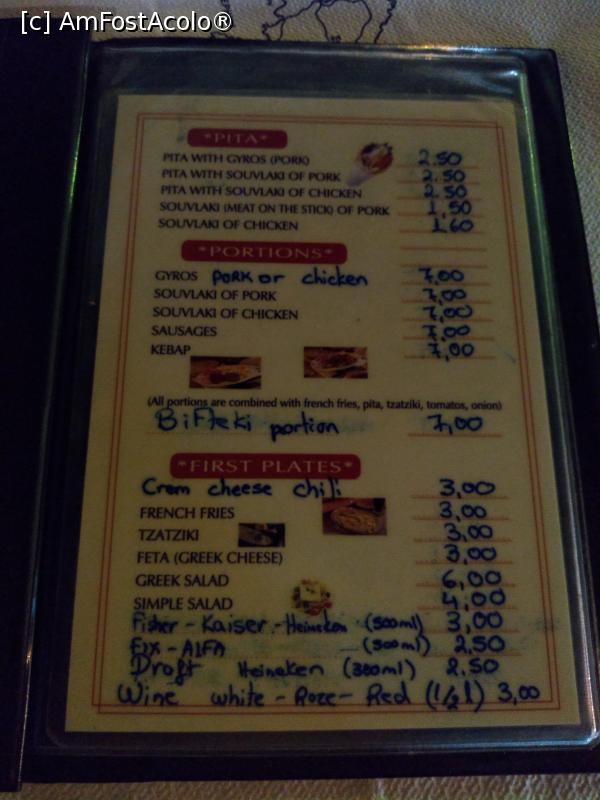 [c] AmFostAcolo®
*PITA*
PITA WITH GYROS (PORK) 2.50
PITA WITH SOUVLAKI OF PORK 2.50
PITA WITH SOUVLAKI OF CHICKEN 2.50
SOUVLAKI (MEAT ON THE STICK) OF PORK 1,50
SOUVLAKI OF CHICKEN 1.60
*PORTIONS*
GYROS PORK or chicken 7,00
SOUVLAKI OF PORK 7,00
SOUVLAKI OF CHICKEN 7,00
SAUSAGES 7,00
KEBAP 7,00
(All portions are combined with french fries, pita, tzatziki, tomatos, onion)
Bifteki portion 7,00
*FIRST PLATES*
Crem cheese chili 3,00
FRENCH FRIES 3,00
TZATZIKI 3,00
FETA (GREEK CHEESE) 3,00
GREEK SALAD 6,00
SIMPLE SALAD 4,00
Fisher - Kaiser - Heineken (500ml) 3,00
FIX - ALFA - (500ml) 2,50
Droft Heineken (300ml) 2,50
Wine white - Roze - Red (1/2 l) 3,00